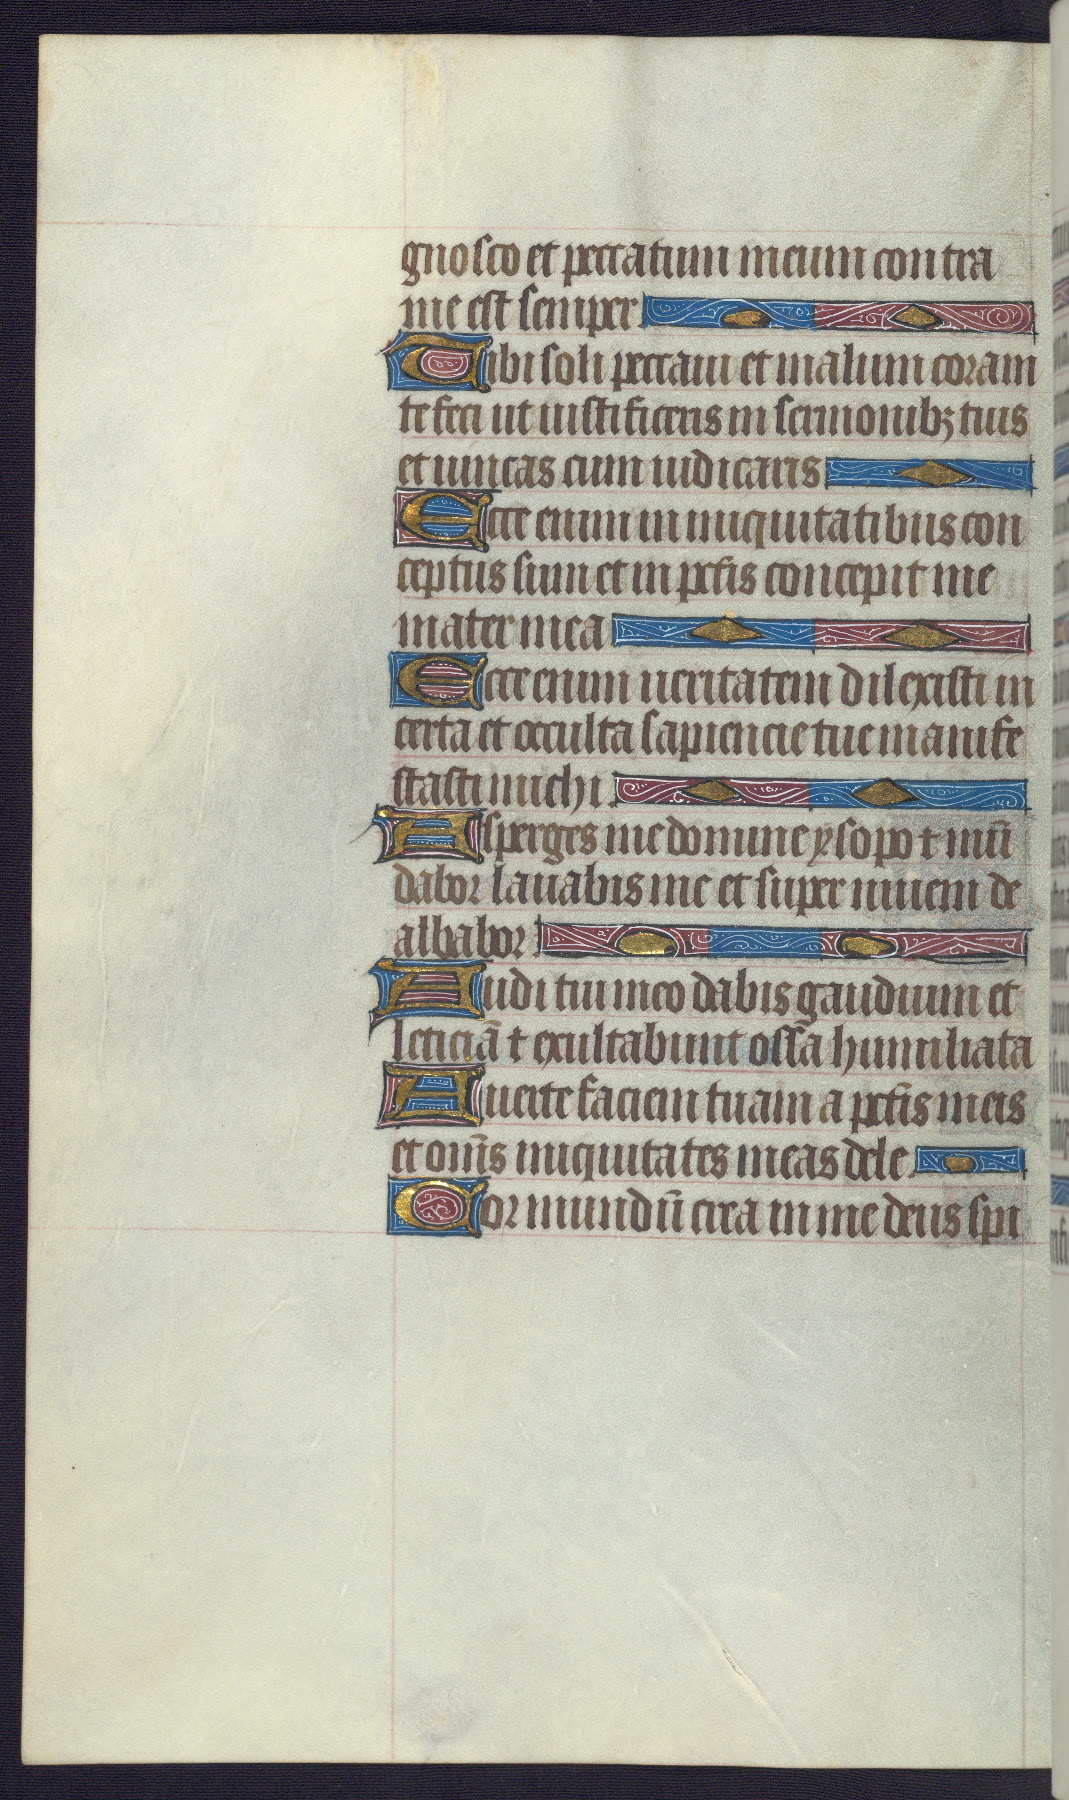 gnosco et peccatum meum contra
me est semper
Tibi soli peccaui et malum coram
te feci ut iustificeris in sermonibꝫ tuis
et uincas cum iudicaris
Ecce enim in iniquitatibus con
ceptus sum et in pctis̄ concepit me
mater mea
Ecce enim ueritatem dilexisti in
certa et occulta sapiencie tue manife
stasti michi
Asperges me domine ysopo ⁊ mū
dabor lauabis me et super niuem de
albabor
Auditui meo dabis gaudium et
leticiā ⁊ exultabunt ossa humiliata
Auerte faciem tuam a pctis̄ meis
et om̄s iniquitates meas dele
Cor mundū crea in me deus spi